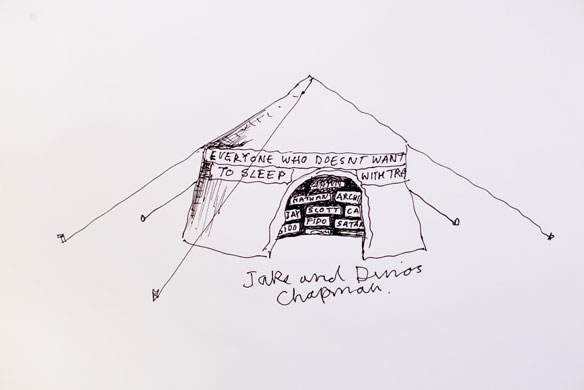 EVERYONE WHO DOESNT WANT
TO SLEEP WITH TRA
JOHN
NATHAN ARCHI
JAY SCOTT CA
DIDO FIDO SATAN
Jake and Dinos
Chapman.